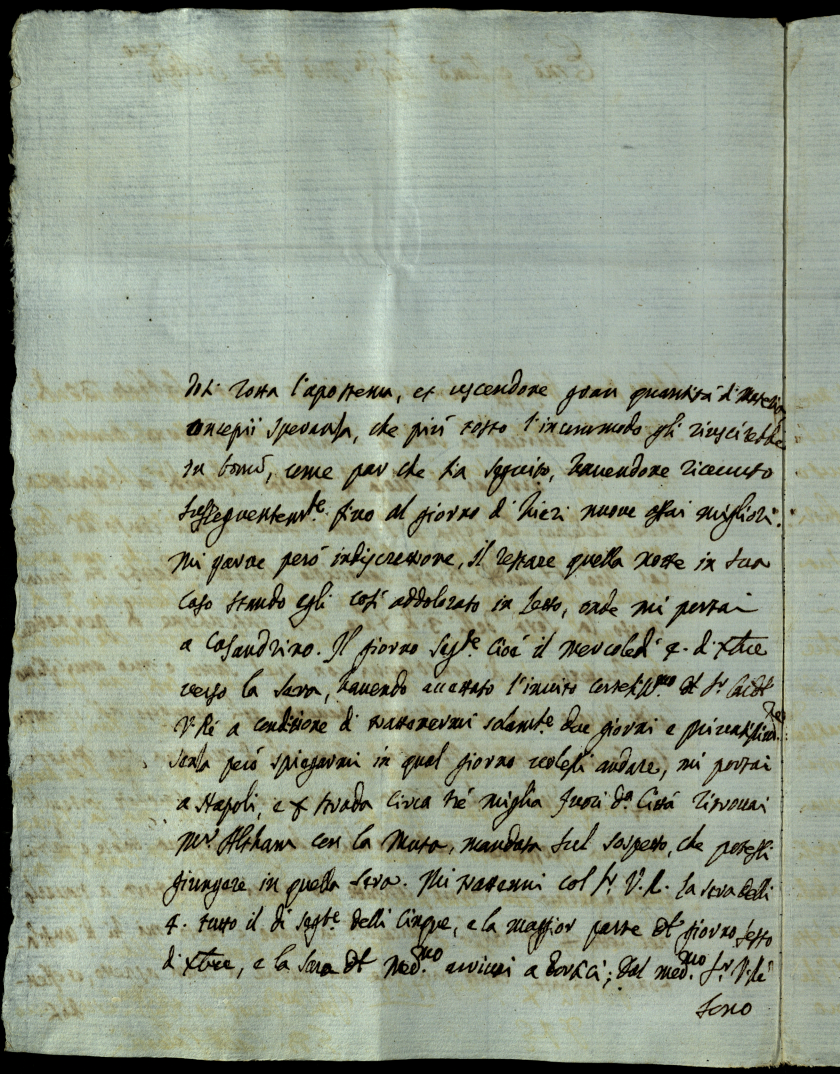 rotta l'apostema, et uscendone gran quantità di materia
concepii speranza, che più tosto l'incommodo gli riuscirebbe
in bene, come par che sia seguito, havendone ricevuto
susseguentemte. fino al giorno d'hieri nuove assai migliori.
Mi parve però indiscrezione, il restare quella notte in sua
casa stando egli così addolorato in letto, onde mi portai
a Casandrino. Il giorno segte. cioè il mercoledì 4. di Xbre
verso la sera, havendo accettato l'invito cortesissmo del Sr. Card.le
V. Rè a condizione di trattenermi solamte. due giorni e privatissimte.
senza però spiegarmi in qual giorno volessi andare, mi portai
a Napoli, e p strada circa trè miglia fuori da. Città ritrovai
Mr. Althann con la Muta, mandata sul sospetto, che potessi
giungere in quella sera. Mi trattenni col Sr. V. R. la sera delli
4. tutto il dì segte. delli cinque, e la maggior parte del giorno sesto
di Xbre, e la sera del medmo. arrivai a Portici; dal medmo. Sr. V. Rè
sono